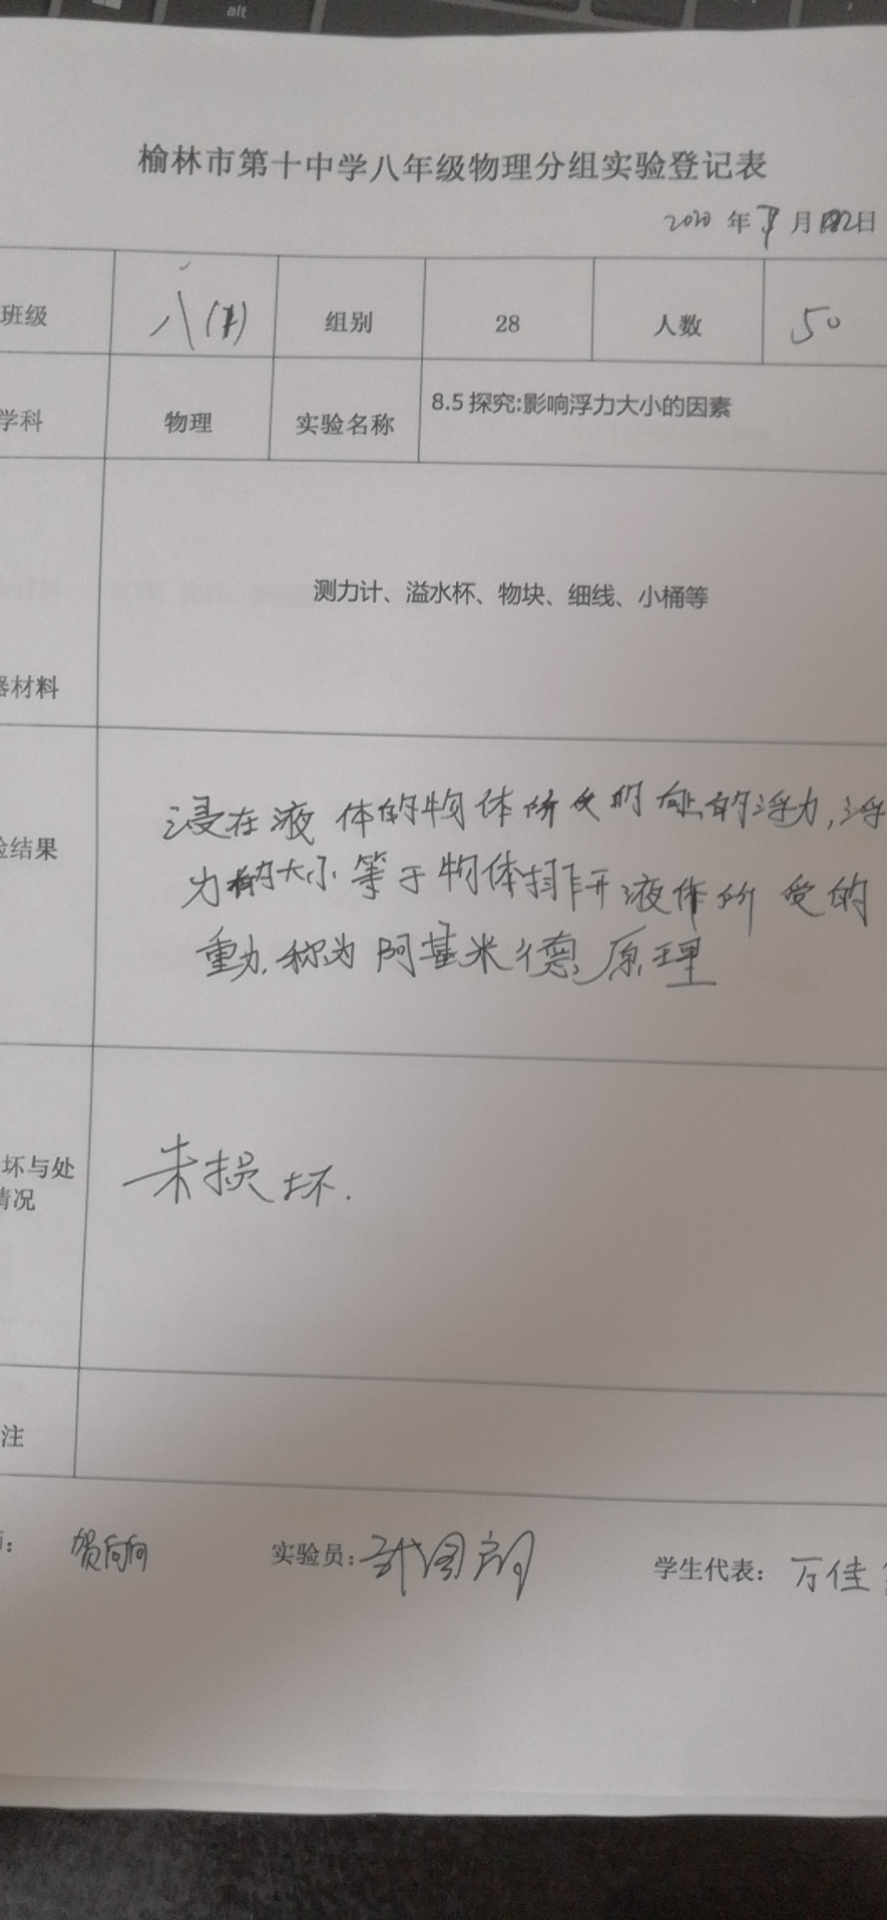 alt
榆林市第十中学八年级物理分组实验登记表
2020 年 月 日
班级 八( ) 组别 28 人数 50
学科 物理 实验名称 8.5 探究:影响浮力大小的因素
测力计、溢水杯、物块、细线、小桶等
器材料
浸在液体的物体所受 的浮力,浮
验结果
力 的大小等于物体排开液体所受的
重力.称为阿基米德原理
坏与处
情况
未损坏.
注
: 贺向向 实验员: 学生代表: 万佳